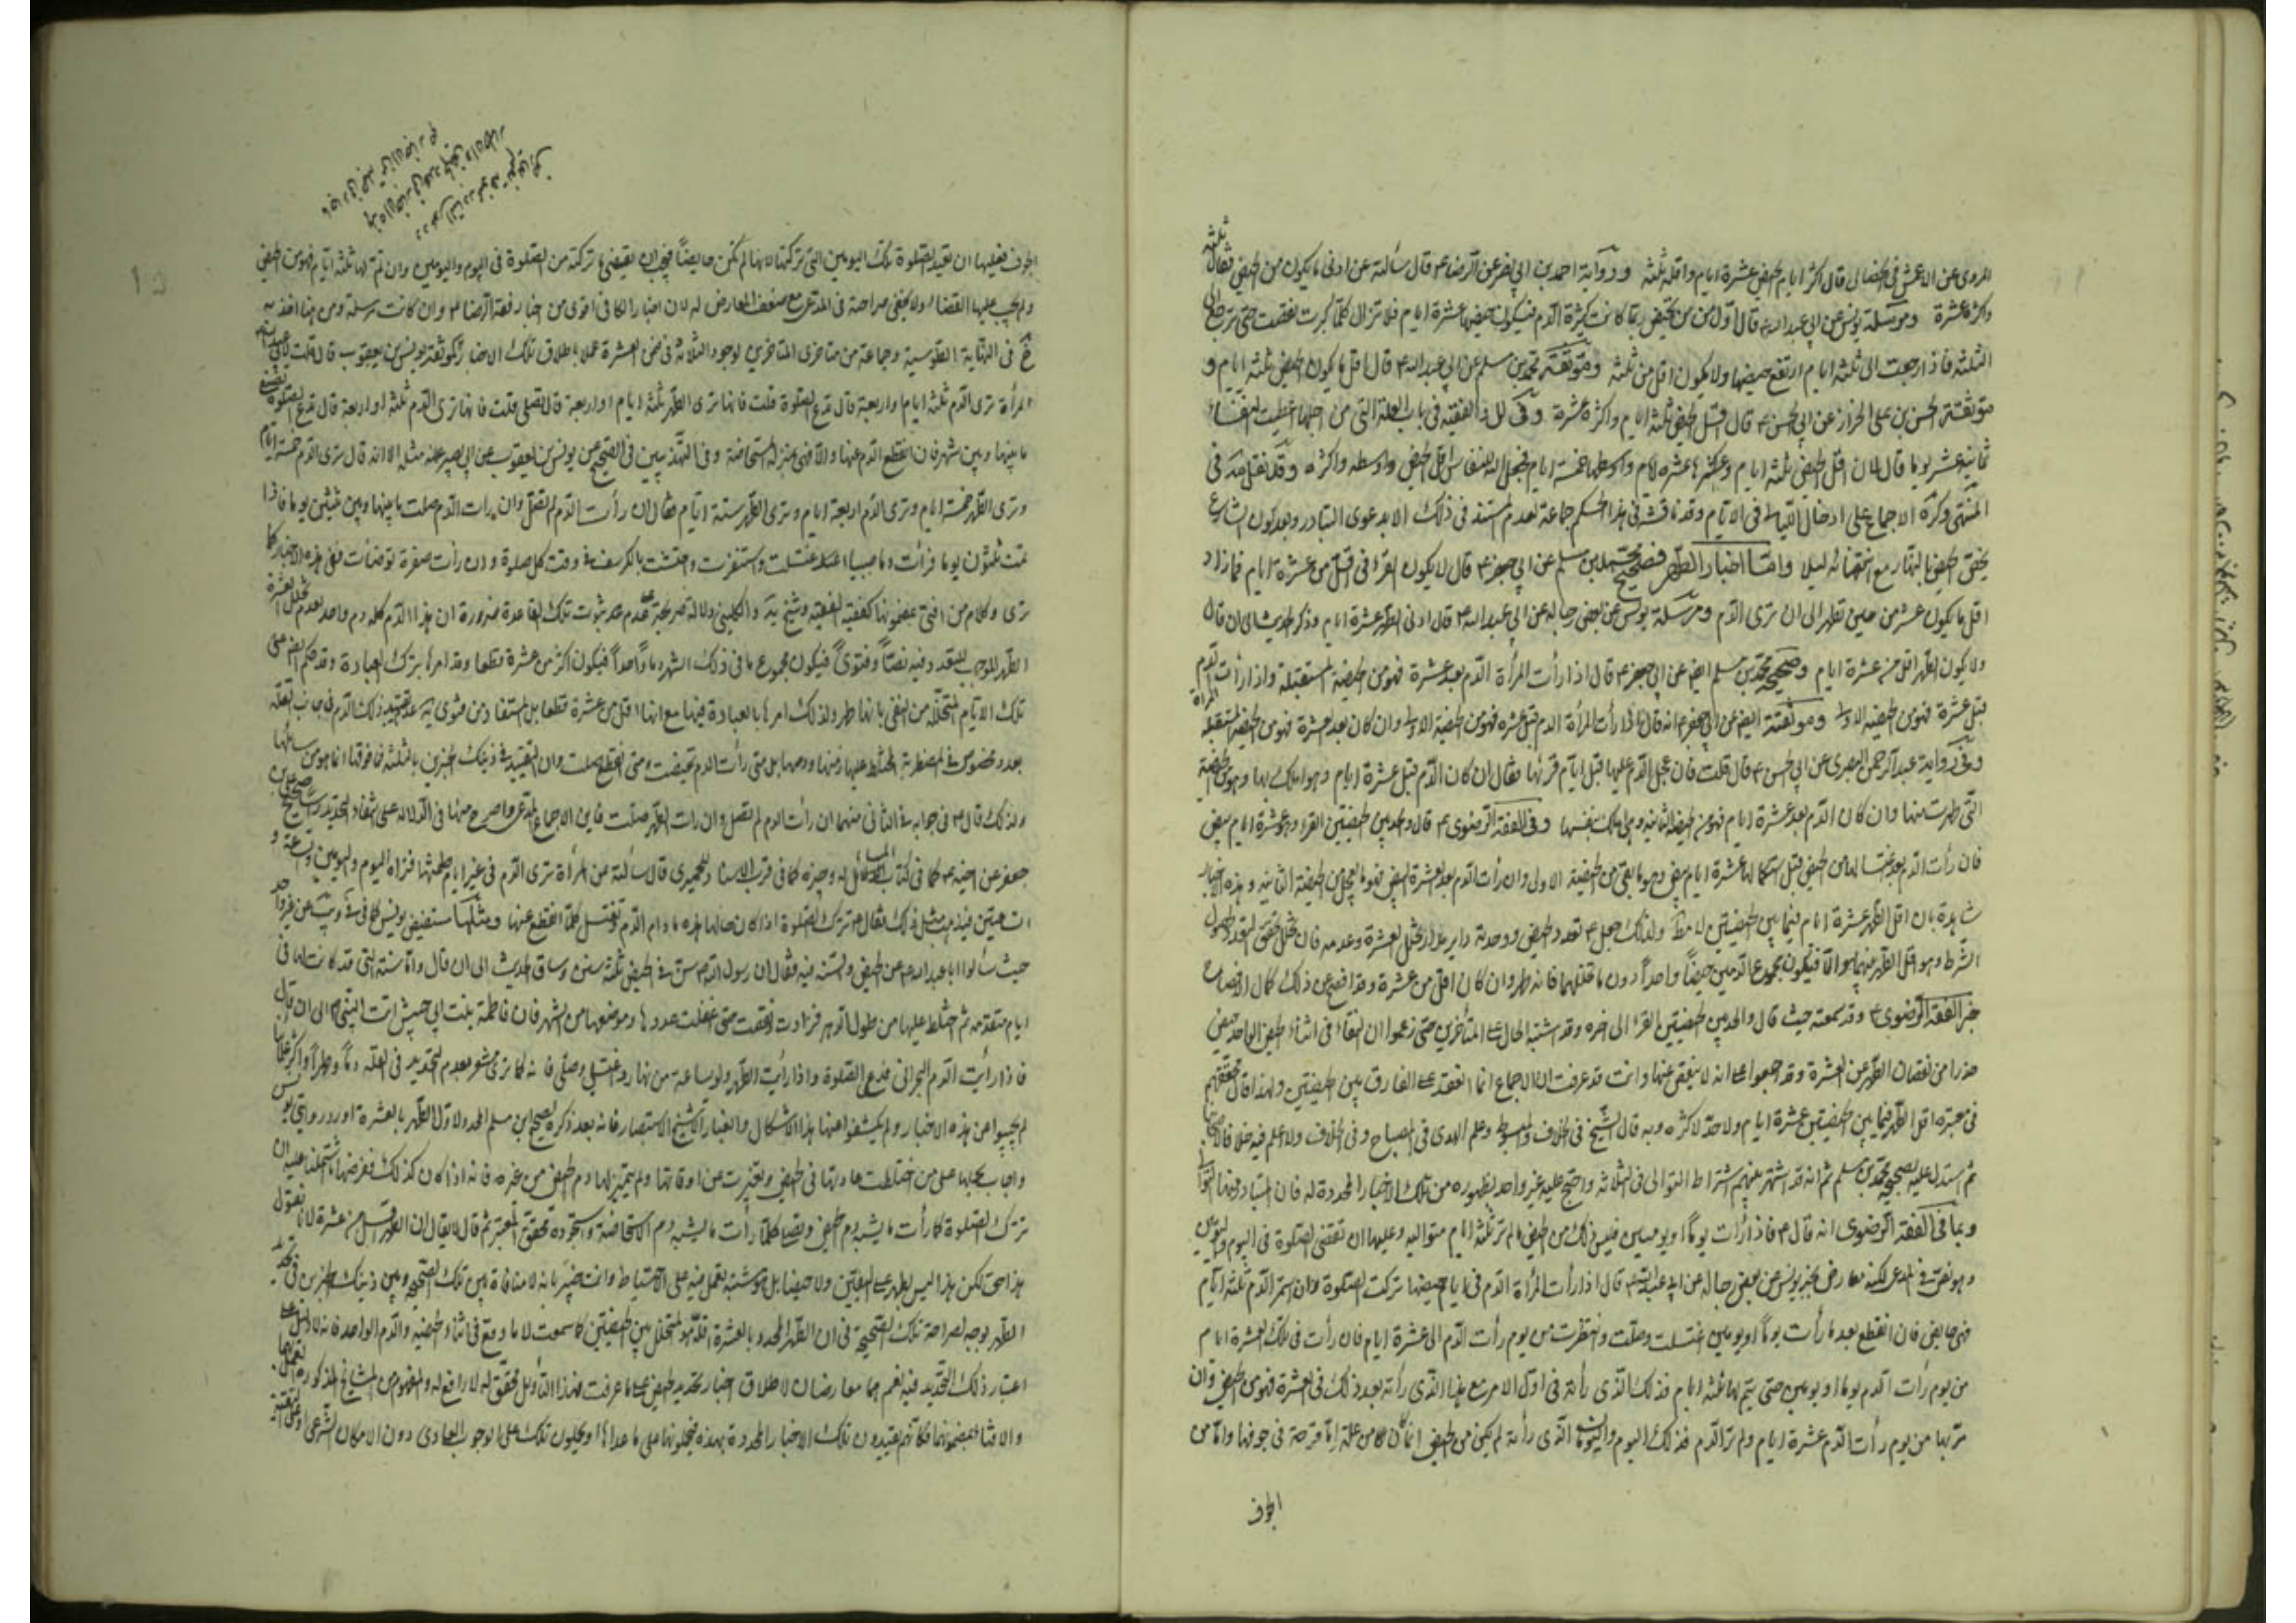 المروى عن الاعمش فى الخصال قال اكثر ايام الحيض عشرة ايام واقله ثلثة ورواية احمد بن ابى نصر عن الرضا ع قال سألته عن ادنى ما يكون من الحيض فقال ثلثة
واكثره عشرة ومرسلة يونس عن ابى عبد الله ع قال اول من تحيض ربما كانت كثيرة الدم فيكون حيضها عشرة ايام فلا تزال كلما كبرت نقصت حتى ترجع الى
الثلثة فاذا رجعت الى ثلثة ايام ارتفع حيضها ولا يكون اقل من ثلثة وموثقة محمد بن مسلم عن ابى عبد الله ع قال اقل ما يكون الحيض ثلثة ايام و
موثقة الحسن بن على الخراز عن ابى الحسن ع قال اقل الحيض ثلثة ايام واكثره عشرة وفى العلل والفقيه فى باب العلة التى من اجلها اعطيت النفساء
ثمانية عشر يوما قال لان اقل الحيض ثلثة ايام واكثرها عشرة ايام واوسطها خمسة ايام فجعل الله للنفساء اقل الحيض واوسطه واكثره وقد نقل جد فى
المنتهى وكره الاجماع على ادخال الليالى فى الايام وقد ناقشه فى هذا الحكم جماعة لعدم المستند فى ذلك الا بدعوى التبادر وبعد كون الشارع
يحقق الحيض بالنهار مع انتفائه ليلا واما اخبار الطهر فصحيح محمد بن مسلم عن ابى جعفر ع قال لا يكون القرء فى اقل من عشرة ايام فما زاد
اقل ما يكون عشر من حين تطهر الى ان ترى الدم ومرسلة يونس عن بعض رجاله عن ابى عبد الله ع قال ادنى الطهر عشرة ايام وذكر الحديث الى ان قال
ولا يكون الطهر اقل من عشرة ايام وصحيحة محمد بن مسلم ايض عن ابى جعفر ع قال اذا رأت المرأة الدم بعد عشرة فهو من الحيضة المستقبلة واذا رأت الدم
قبل عشرة فهو من الحيضة الاولى وموثقته ايض عن ابى جعفر ع انه قال اذا رأت المرأة الدم قبل عشرة فهو من الحيضة الاولى وان كان بعد العشرة فهو من الحيضة المستقبلة
وفى رواية عبد الرحمن البصرى عن ابى الحسن ع قال قلت فان عجل الدم عليها قبل ايام قرئها فقال ان كان الدم قبل عشرة ايام فهو املك بها وهو من الحيضة
التى طهرت منها وان كان الدم بعد عشرة ايام فهو من الحيضة الثانية وهى املك بنفسها وفى الفقه الرضوى ع قال والحد بين الحيضتين القرء وهو عشرة ايام بيض
فان رأت الدم بعد اغتسالها من الحيض قبل استكمالها عشرة ايام بيض فهو ما بقى من الحيضة الاولى وان رأت الدم بعد العشرة البيض فهو ما تعجل من الحيضة الثانية وهذه الاخبار
شاهدة بان اقل الطهر عشرة ايام فيما بين الحيضتين لا مط ولذلك جعل ع تعدد الحيض ووحدته داير مدار تخلل العشرة وعدمه فان تخلل تحقق التعدد لحصول
الشرط وهو اقل الطهر بينهما والا فيكون مجموع الدمين حيضاً واحداً دون ما تخللهما فانه طهر وان كان اقل من عشرة وقد افصح عن ذلك كمال الافصاح
خبر الفقه الرضوى ع وقد سمعته حيث قال والحد بين الحيضتين القرء الى اخره وقد اشتبه الحال على المتأخرين حتى زعموا ان النقاء فى اثناء الحيض الواحد حيض
حذرا من نقصان الطهر عن العشرة وقد اجمعوا على انه لا ينقص عنها وانت قد عرفت ان الاجماع انما انعقد على الفارق بين الحيضتين ولهذا قال محققهم
فى معتبره اقل الطهر فيما بين الحيضتين عشرة ايام ولا حد لاكثره وبه قال الشيخ فى الخلاف والمبسوط وعلم الهدى فى المصباح وفى الخلاف ولا اعلم فيه خلافا
ثم استدل عليه بصحيح محمد بن مسلم ثم انه قد اشتهر بينهم اشتراط التوالى فى الثلاثة واحتج عليه غير واحد بظهوره من تلك الاخبار المحددة له فان المتبادر منها التوالى
وبما فى الفقه الرضوى انه قال ع فاذا رأت يوماً او يومين فليس ذلك من الحيض ما لم تر ثلثة ايام متواليه وعليها ان تقضى الصلوة فى اليوم واليومين
وهو نص فى المدعى لكنه معارض بخبر يونس عن بعض رجاله عن ابى عبد الله ع قال اذا رأت المرأة الدم فى ايام حيضها تركت الصلوة وان استمر الدم ثلثة ايام
فهى حايض فان انقطع بعد ما رأت يوماً او يومين اغتسلت وصلت وانتظرت من يوم رأت الدم الى عشرة ايام فان رأت فى تلك العشرة ايام
من يوم رأت الدم يوما او يومين حتى يتم لها ثلثة ايام فذلك الذى رأته فى اول الامر مع هذا الذى رأته بعد ذلك فى العشرة فهو من الحيض وان
مر بها من يوم رأت الدم عشرة ايام ولم تر الدم فذلك اليوم واليومان الذى رأته لم يكن من الحيض انما كان من علة اما قرحة فى جوفها واما من
الجوف
الجوف فعليها ان تعيد الصلوة تلك اليومين التى تركتها لانها لم تكن حايضاً فيجب ان تقضى ما تركته من الصلوة فى اليوم واليومين وان تم لها ثلثة ايام فهو من الحيض
ولم يجب عليها القضاء ولا يخفى صراحته فى المدعى مع ضعف المعارض له لان اخبار الكافى اقوى من اخبار فقه الرضا ع وان كانت مرسلة ومن هنا اخذ به
فى النهاية الطوسية وجماعة من متاخرى المتاخرين لوجود الثلاثة فى ضمن العشرة عملا باطلاق تلك الاخبار كموثقة يونس بن يعقوب قال قلت لابى عبد الله
المرأة ترى الدم ثلثة ايام او اربعة قال تدع الصلوة قلت فانها ترى الطهر ثلثة ايام او اربعة قال تصلى قلت فانها ترى الدم ثلثة او اربعة قال تدع الصلوة تصنع
ما بينها وبين شهر فان انقطع الدم عنها والا فهى بمنزلة المستحاضة وفى التهذيبين فى الصحيح عن يونس بن يعقوب عن ابى بصير عنه مثله الا انه قال ترى الدم خمسة ايام
وترى الطهر خمسة ايام وترى الدم اربعة ايام وترى الطهر ستة ايام فقال ان رأت الدم لم تصل وان رأت الدم صلت ما بينها وبين ثلثين يوما فاذا
تمت ثلثون يوما فرأت دما صبيبا اغتسلت واستثفرت واحتشت بالكرسف فى وقت كل صلوة وان رأت صفرة توضأت ففى هذه الاخبار كما
ترى وكلام من افتى بمضمونها كفقيه الفقيه وشيخ يه والكلينى دلالة صريحة على عدم ثبوت تلك القاعدة ضرورة ان هذا الدم كله دم واحد لعدم تخلل العشرة
الطهر الموجب للتعدد فيه نصاً وفتوى فيكون مجموع ما فى ذلك الشهر دماً واحداً فيكون اكثر من عشرة قطعا وقد امرها بترك العبادة وقد حكم ايض على
تلك الايام المتخللة من النقى بانها طهر ولذلك امرها بالعبادة فيها مع انها اقل من عشرة قطعا بل المستفاد من فتوى يه عدم تقييد ذلك الدم فى جانب القلة
بعدد مخصوص فى المضطربة المختلط عليها زمنها ودمها بل متى رأت الدم تحيضت ومتى انقطع صلت وان التقييد فى ذينك الخبرين بالثلثة فما فوقها انما هو من سائلها
ولذلك قال ع فى جوابه فى الثانى منهما ان رأت الدم لم تصل وان رأت الطهر صلت فاين الاجماع المدعى واصرح منها فى الدلالة على انتفاء التحديد صحيح على بن
جعفر عن اخيه ع كما فى كتاب المسائل له وخبره كما فى قرب الاسناد للحميرى قال سألته عن المرأة ترى الدم فى غير ايام طمثها فتراه اليوم واليومين والساعة و
الساعتين ويذهب مثل ذلك فقال ع تترك الصلوة اذا كان حالها هذه ما دام الدم وتغتسل كلما انقطع عنها ومثلها مستفيض يونس كما فى فى ويب عن غير واحد
حيث سألوا ابا عبد الله ع عن الحيض والسنة فيه فقال ان رسول الله ص سن فى الحيض ثلثة سنن وساق الحديث الى ان قال واما سنة التى قد كانت لها
ايام متقدمة ثم اختلط عليها من طول الدم فزادت ونقصت حتى اغفلت عددها وموضعها من الشهر فان فاطمة بنت ابى حبيش اتت النبى ص الى ان قال
فاذا رأيت الدم البحرانى فدع الصلوة واذا رأيت الطهر ولو ساعة من نهار فاغتسلى وصلى فانه كما ترى مشعر بعدم التحديد فى القلة دماً وطهراً واكثر علمائنا
لم يجيبوا عن هذه الاخبار ولم يكشفوا عنها هذا الاشكال والغبار الا شيخ الاستبصار فانه بعد ذكره لصحيح ابن مسلم المحدد لاقل الطهر بالعشرة اورد روايتى يونس
واجاب بحملها على من اختلطت عادتها فى الحيض وتغيرت عن اوقاتها ولم يتميز لها دم الحيض من غيره فانه اذا كان كذلك ففرضها ما اشتملتا عليه ان
تترك الصلوة كلما رأت ما يشبه دم الحيض وتصلى كلما رأت ما يشبه دم الاستحاضة واستجوده محقق المعتبر ثم قال لا يقال ان الطهر اقل من عشرة لانا نقول
هذا حق لكن هذا ليس بطهر على اليقين ولا حيضا بل هو مشتبه تعمل فيه على الاحتياط وانت خبير بانه لا منافاة بين تلك الصحيحه وبين ذينك الخبرين فى تحديد
الطهر بوجه لصراحة تلك الصحيحة فى ان الطهر المحدد بالعشرة اقله هو المتخلل بين الحيضتين كما سمعت لا ما وقع فى اثناء الحيضه والدم الواحد فانه لا دليل على
اعتبار ذلك التحديد فيه نعم هما معارضان لاطلاق اخبار تحديد الحيض على ما عرفت فهذا التأويل محقق له لا رافع له والمفهوم من المشايخ المذكوره العمل بها
والافتاء بمضمونها فكانهم يقيدون تلك الاخبار المحددة بهذه فيحملونها على ما عداها او يحملون تلك على الوجود العادى دون الامكان الشرعى او على التقية